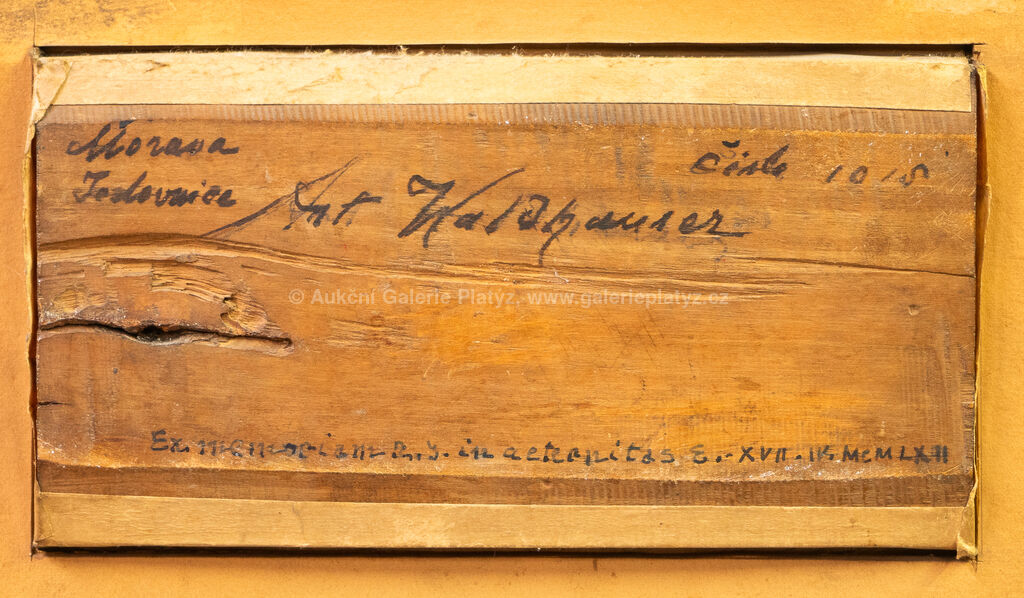 Morava
Jedovnice
Ant Waldhauser
Čislo 1018
© Aukční Galerie Platýz, www.galerieplatyz.cz
Ex. memoriam R. J. in aeternitas S. - XVII. IV. MCMLXII